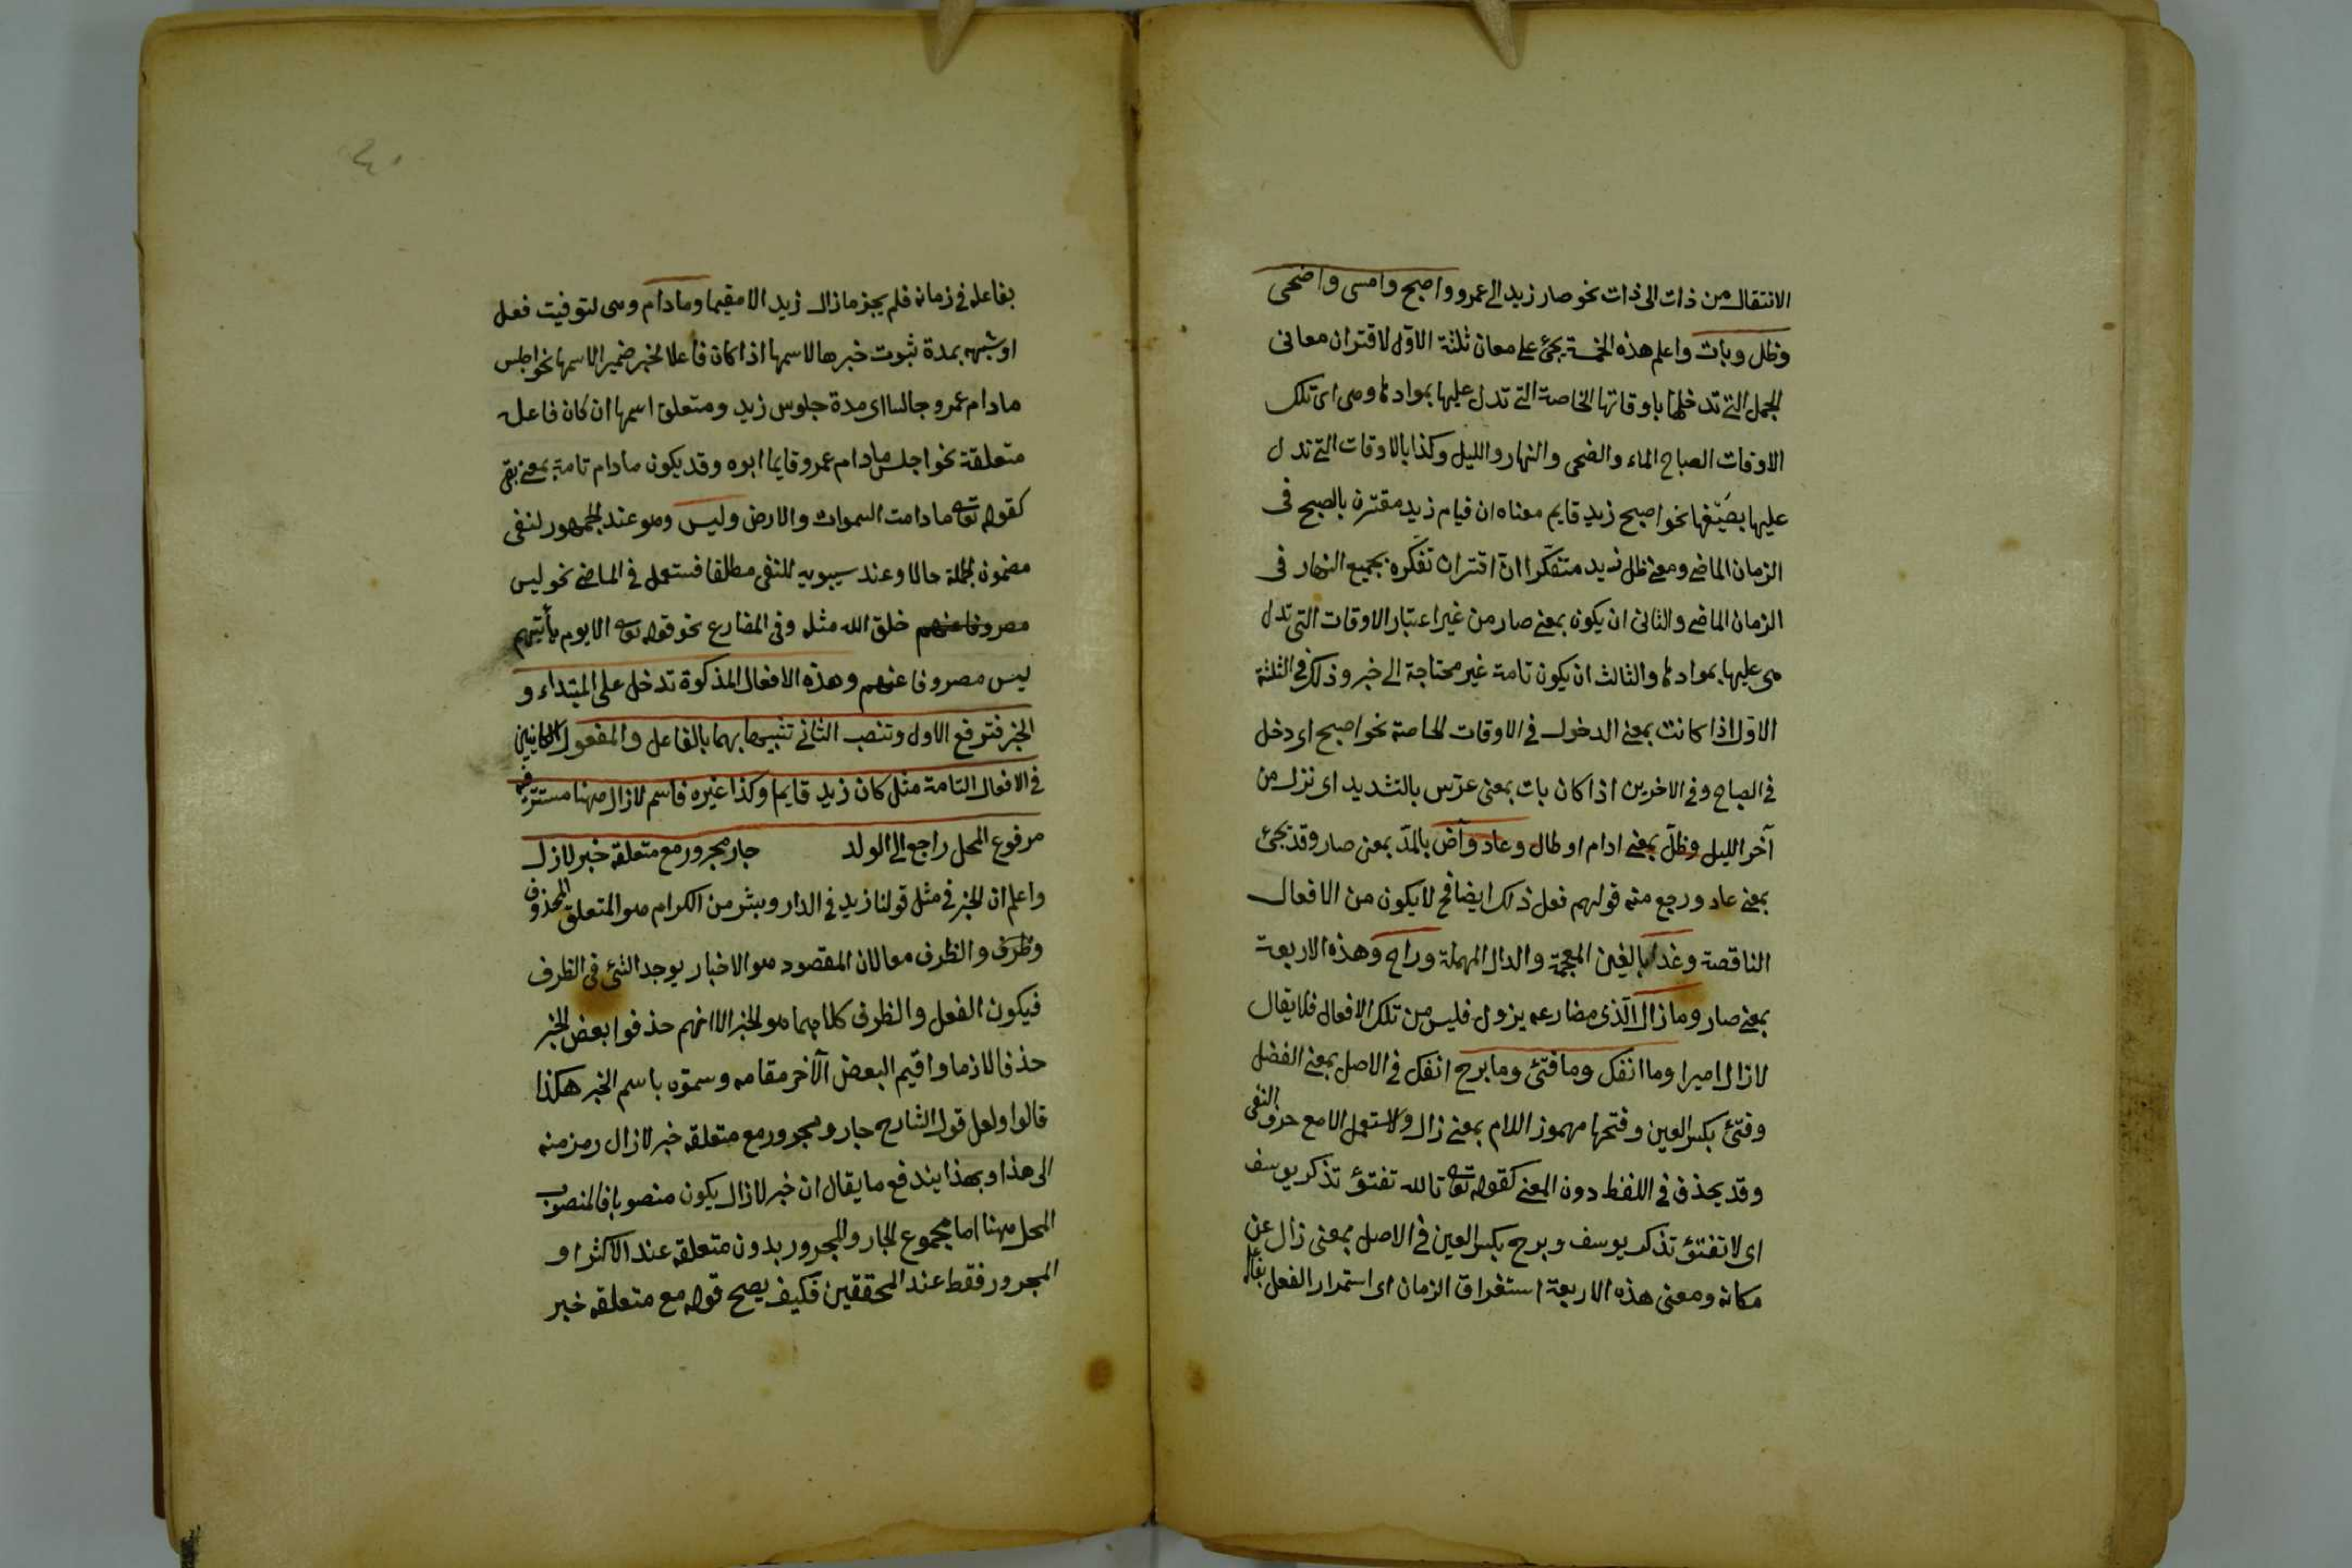 الانتقال من ذات الى ذات نحو صار زيد الى عمرو واصبح وامسى واضحى
وظل وبات واعلم هذه الخمسة يجئ على معان ثلثة الاوّل لاقتران معانى
الجمل التى تدخلها باوقاتها الخاصة التى تدل عليها بموادها وهى اى تلك
الاوقات الصباح المساء والضحى والنهار والليل وكذا بالاوقات التى تدل
عليها بصيَغها نحو اصبح زيد قايم معناه ان قيام زيد مقترن بالصبح فى
الزمان الماضى ومعنى ظل زيد متفكّرا انّ اقتران تفكّره بجميع النهار فى
الزمان الماضى والثانى ان يكون بمعنى صار من غير اعتبار الاوقات التى تدل
هى عليها بموادها والثالث ان يكون تامة غير محتاجة الى خبر وذلك فى الثلثة
الاوّل اذا كانت بمعنى الدخول فى الاوقات الخاصة نحو اصبح اى دخل
فى الصباح وفى الاخرين اذا كان بات بمعنى عرّس بالتشديد اى نزل من
آخر الليل وظلّ بمعنى ادام او طال وعاد وآض بالمدّ بمعنى صار وقد تجئ
بمعنى عاد ورجع منه قولهم فعل ذلك ايضا فح لا يكون من الافعال
الناقصة وغدا بالغين المعجمة والدال المهملة وراح وهذه الاربعة
بمعنى صار وما زال الّذى مضارعه يزول فليس من تلك الافعال فلا يقال
لازال اميرا وما انفك وما فتئ وما برح انفك فى الاصل بمعنى الفصل
وفتئ بكسر العين وفتحها مهموز اللام بمعنى زال ولا يستعمل الا مع حرف النفى
وقد يحذف فى اللفظ دون المعنى كقوله تعالى تالله تفتؤ تذكر يوسف
اى لا تفتؤ تذكر يوسف وبرح بكسر العين فى الاصل بمعنى زال عن
مكانه ومعنى هذه الاربعة استغراق الزمان اى استمرار الفعل بفاعله
٤٠
بفاعله فى زمانه فلم يجز مازال زيد الا مقيما ومادام وهى لتوقيت فعل
او شبهه بمدة ثبوت خبرها لاسمها اذا كان فاعلا لخبر ضميرا لاسمها نحو اجلس
مادام عمرو جالسا اى مدة جلوس زيد ومتعلق اسمها ان كان فاعله
متعلقة نحو اجلس مادام عمرو قايما ابوه وقد يكون مادام تامة بمعنى بقى
كقوله تعالى ما دامت السموات والارض وليس وهو عند الجمهور لنفى
مضمون الجملة حالا وعند سيبويه للنفى مطلقا فستعمل فى الماضى نحو ليس
مصروفا عنهم خلق الله مثله وفى المضارع نحو قوله تعالى الا يوم يأتيهم
ليس مصروفا عنهم وهذه الافعال المذكورة تدخل على المبتداء و
الخبر فترفع الاول وتنصب الثانى تشبيها بهما بالفاعل والمفعول الكائنين
فى الافعال التامة مثل كان زيد قايما وكذا غيره فاسم لازال ههنا مستتر فيه
مرفوع المحل راجع الى الولد جار مجرور مع متعلقه خبر لازال
واعلم ان الخبر فى مثل قولنا زيد فى الدار وبشر من الكرام هو المتعلق المحذوف
وظرف والظرف معا لان المقصود هو الاخبار يوجد الشئ فى الظرف
فيكون الفعل والظرف كلاهما هو الخبر الا انهم حذفوا بعض الخبر
حذفا لازما واقيم البعض الآخر مقامه وسموّه باسم الخبر هكذا
قالوا ولعل قول الشارح جار ومجرور مع متعلقه خبر لازال رمز منه
الى هذا وبهذا يندفع ما يقال ان خبر لازال يكون منصوبا فالمنصوب
المحل ههنا اما مجموع الجار والمجرور بدون متعلقه عند الاكثر او
المجرور فقط عند المحققين فكيف يصح قوله مع متعلقه خبر